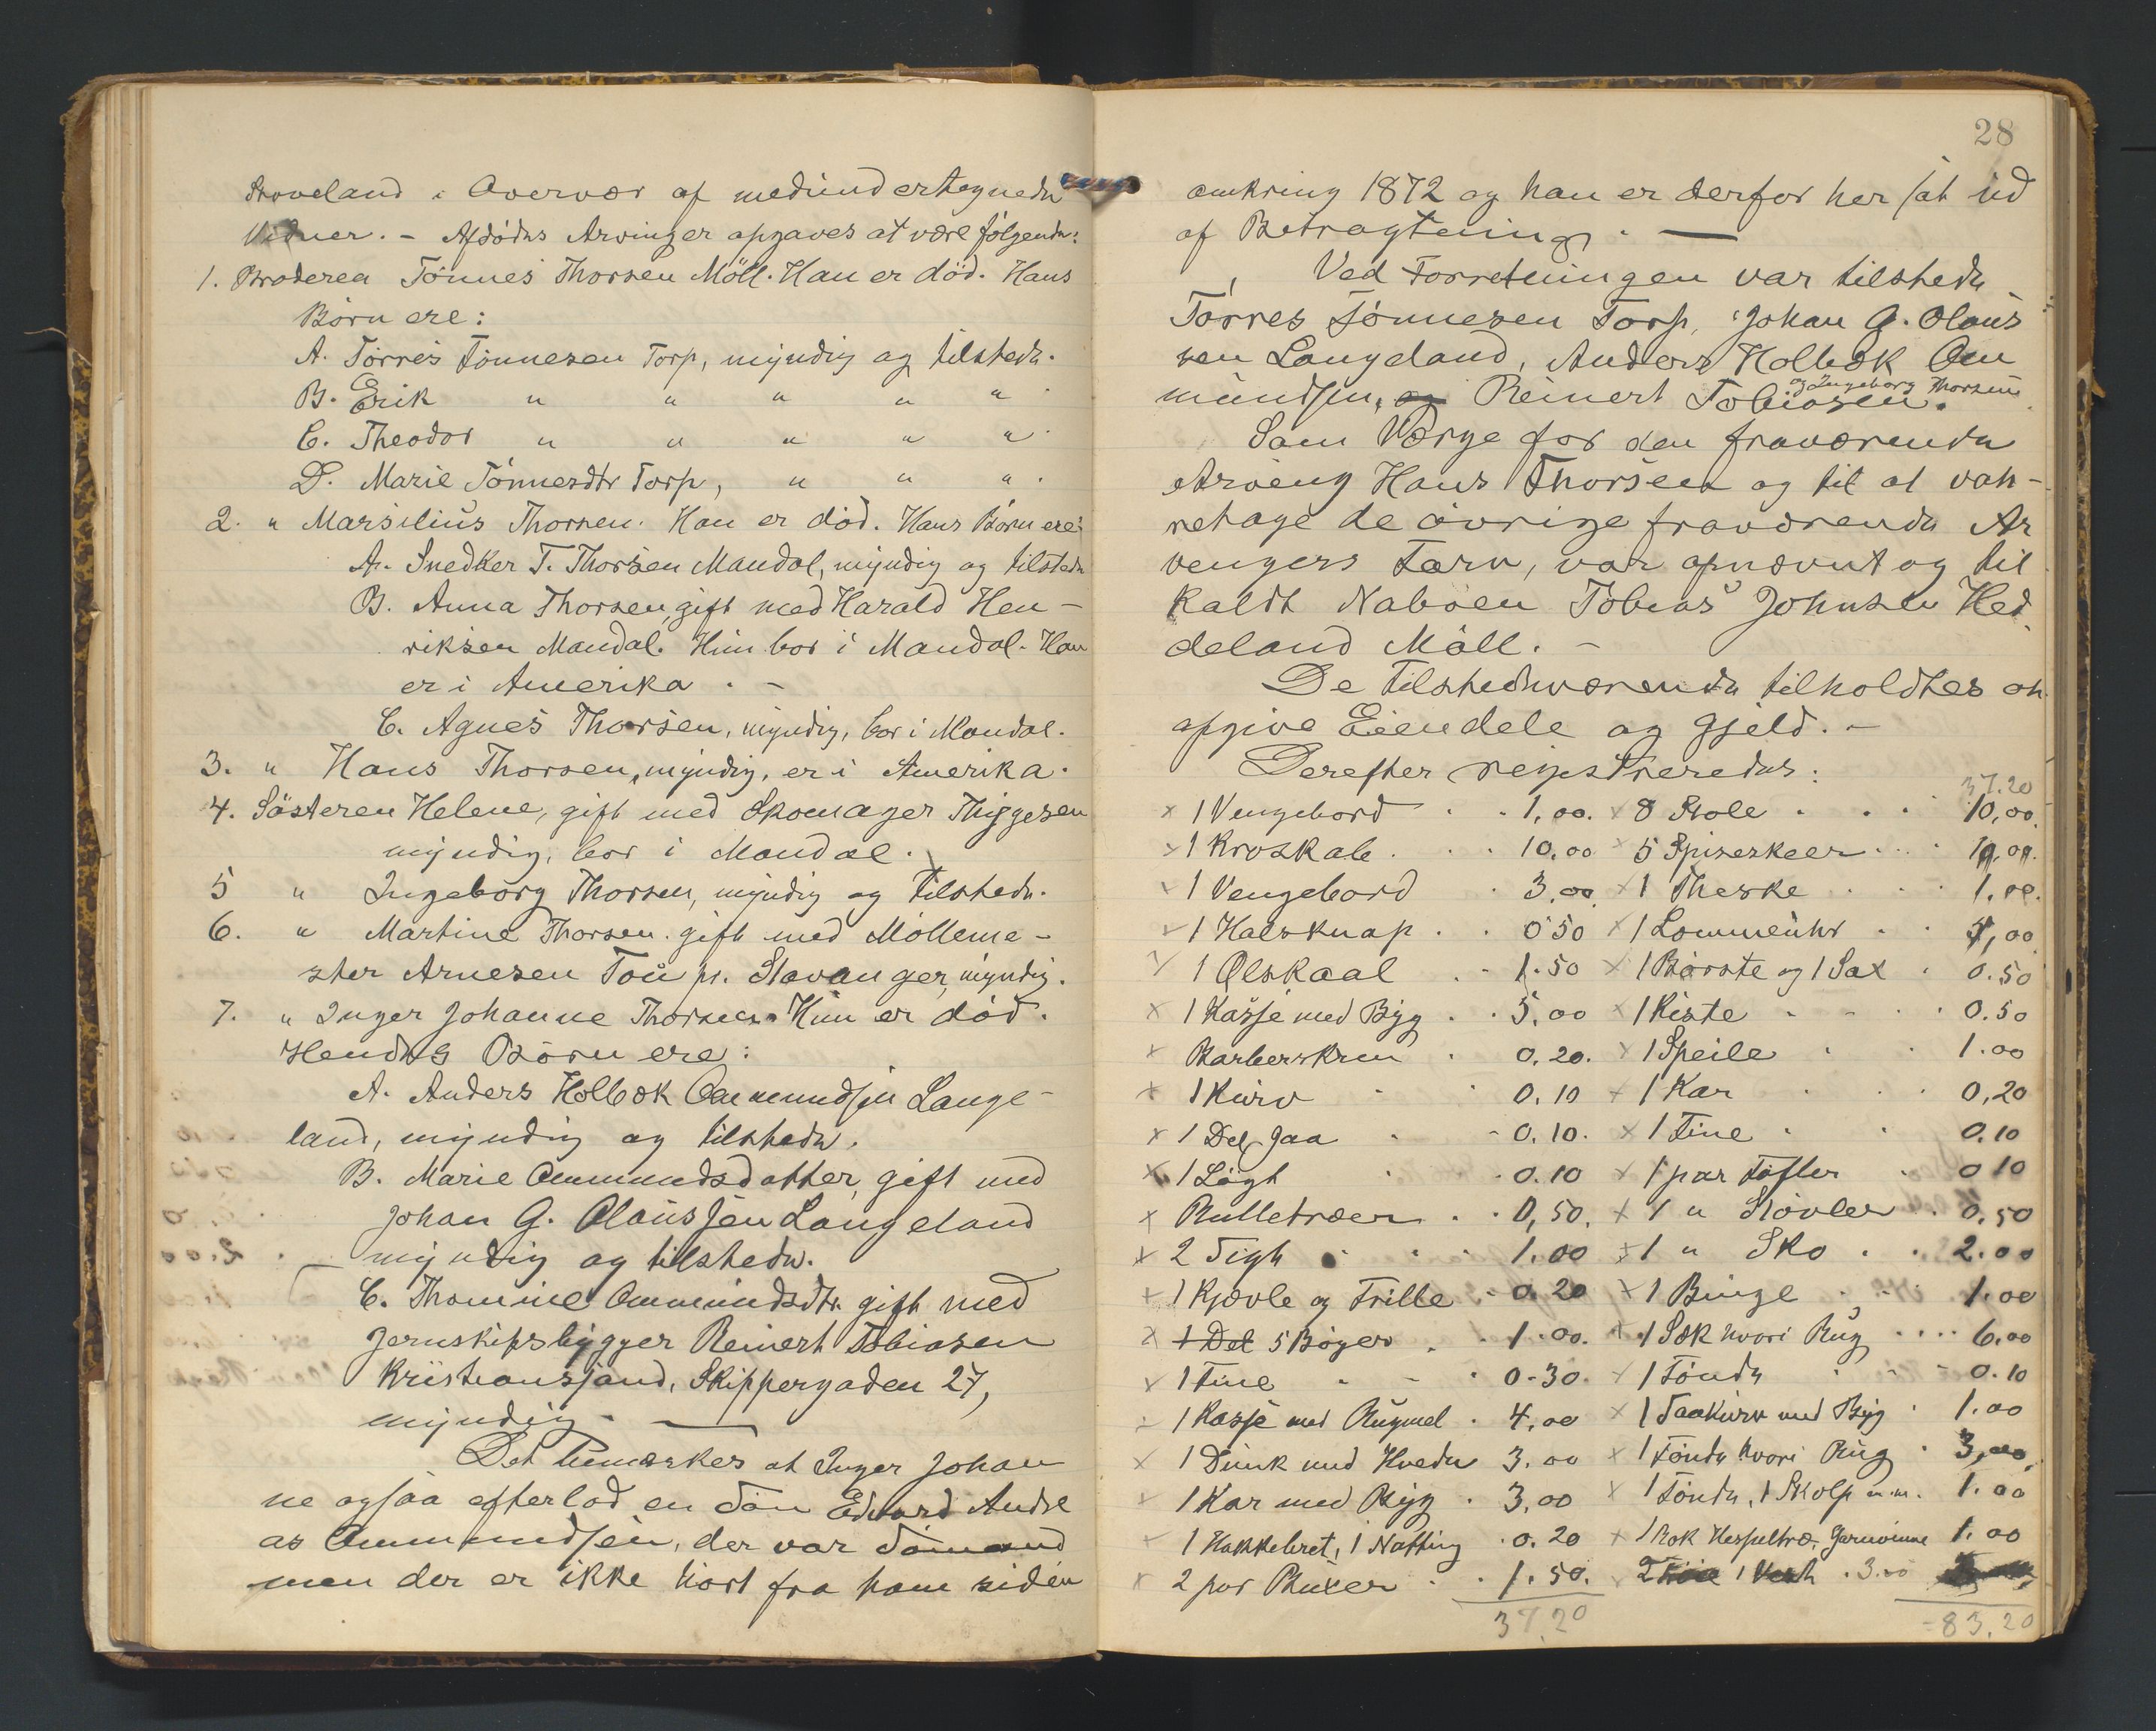 Stoveland i Overvær af medundertegnede
Vidner. – Afdødes Arvinger opgaves at være følgende:
1. Broderen Tønnes Thorsen Möll. Han er død. Hans
Børn ere:
A. Tørres Tønnesen Torp, myndig og tilstede.
B. Erik " " " " "
C. Theodor " " " " "
D. Marie Tønnesdtr Torp, " " "
2. " Marsilius Thorsen. Han er död. Hans Börn ere:
A. Snedker T. Thorsen Mandal, myndig og tilstede
B. Anna Thorsen, gift med Harald Hen-
riksen Mandal. Hun bor i Mandal. Han
er i Amerika. –
C. Agnes Thorsen, myndig, bor i Mandal.
3. " Hans Thorsen, myndig, er i Amerika.
4. Søsteren Helene, gift med Skomager Thygesen
myndig, bor i Mandal.
5 " Ingeborg Thorsen, myndig og tilstede.
6. " Martine Thorsen gift med Mølleme-
ster Arnesen Tou pr. Stavanger, myndig.
7. " Inger Johanne Thorsen. Hun er død.
Hendes Børn ere:
A. Anders Holbæk Ommundsen Lange-
land, myndig og tilstede.
B. Marie Ommundsdatter, gift med
Johan G. Olaussen Langeland
myndig og tilstede.
C. Thomine Ommundsdtr. gift med
Jernskibsbygger Reinert Tobiasen
Kristiansand, Skippergaden 27,
myndig. —
Det bemærkes at Inger Johan
ne ogsaa efterlod en Søn Edvard Andre
as Ommundsen, der var Sømand
men der er ikke hørt fra ham siden
28
omkring 1872 og han er derfor her sat ud
af Betragtning. —
Ved Forretningen var tilstede
Tørres Tønnesen Torp, Johan G. Olaus
sen Langeland, Anders Holbæk Om
og Ingeborg Thorsen
mundsen, og Reinert Tobiasen.
Som Værge for den fraværende
Arving Hans Thorsen og til at vah-
retage de øvrige fraværende Ar
vingers Tarv, var opnævnt og til
kaldt Naboen Tobias Johnsen Hed
deland Møll. –
De tilstedeværende tilholdtes at
opgive Eiendele og Gjeld. –
Derefter registreredes:
37.20
x 1 Vengebord . . 1,00. x 8 Stole . . . 10,00.
x 1 Kroskab . . . 10.00 x 5 Spiseskeer . . .
x 1 Vengebord . 3.00 x 1 Theske . . . 1.00.
x 1 Halsknap . . 0 50 x 1 Lommeuhr . .
x 1 Ølskaal . . 1.50 x 1 Børste og 1 Sax . 0.50
x 1 Kasse med Byg . . 5.00 x 1 Kiste . . . 0.50
x Barberskrin . 0.20. x 1 Speile . . 1.00
x 1 Kurv . . 0.10 x 1 Kar . . 0,20
x 1 Del Jaa . . 0.10. x 1 Tine . . 0.10
x 1 Løgt . . 0.10 x 1 par Tøfler . 0 10
x Rulletræer . . 0,50. x 1 " Støvler . 0.50
x 2 . . . 1.00 x 1 " Sko . . 2.00
x 1 Kjævle og Trille . 0.20 x 1 Binge . . 1.00
x 1 Del 5 Bøger . . 1.00. x 1 Sæk hvori Rug . . . . 6.00
x 1 Tine . . . 0.30. x 1 Tønde . . 0.10
x 1 Kasse med Rugmel . 4.00 x 1 Taakurv med Byg . 1.00
x 1 Dunk med Hvede 3.00 x 1 Tønde hvori Rug . 3,00.
x 1 Kar med Byg . 3,00 x 1 Tønde, 1 Skolp m.m. 1.00
x 1 Hakkebret, 1 . 0.20 x 1 Rok Hespeltræ, Garnvinne 1.00
x 2 par Buxer . . 1.50. 1 Vest . 3.00
37.20
83.20